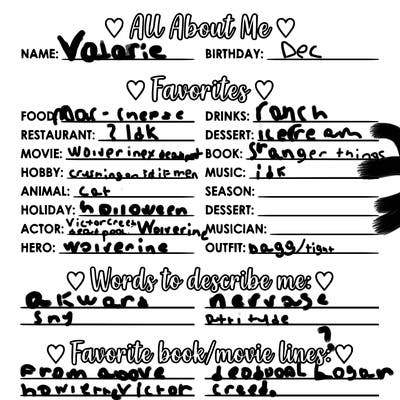 All About Me
NAME: Valarie BIRTHDAY: Dec
Favorites
FOOD: mac-cheese DRINKS: ranch
RESTAURANT: ? idk DESSERT: icecream
MOVIE: wolverinex deadpool BOOK: Stranger things
HOBBY: crushing on Edit men MUSIC: idk
ANIMAL: cat SEASON:
HOLIDAY: halloween DESSERT:
ACTOR: Victor Creed deadpool Wolverine MUSICIAN:
HERO: wolverine OUTFIT: Bagg/tight
Words to describe me:
akward nervase
Shy attitude
Favorite book/movie lines: ?
From above deadpool Logan
howlett Victor Creed.